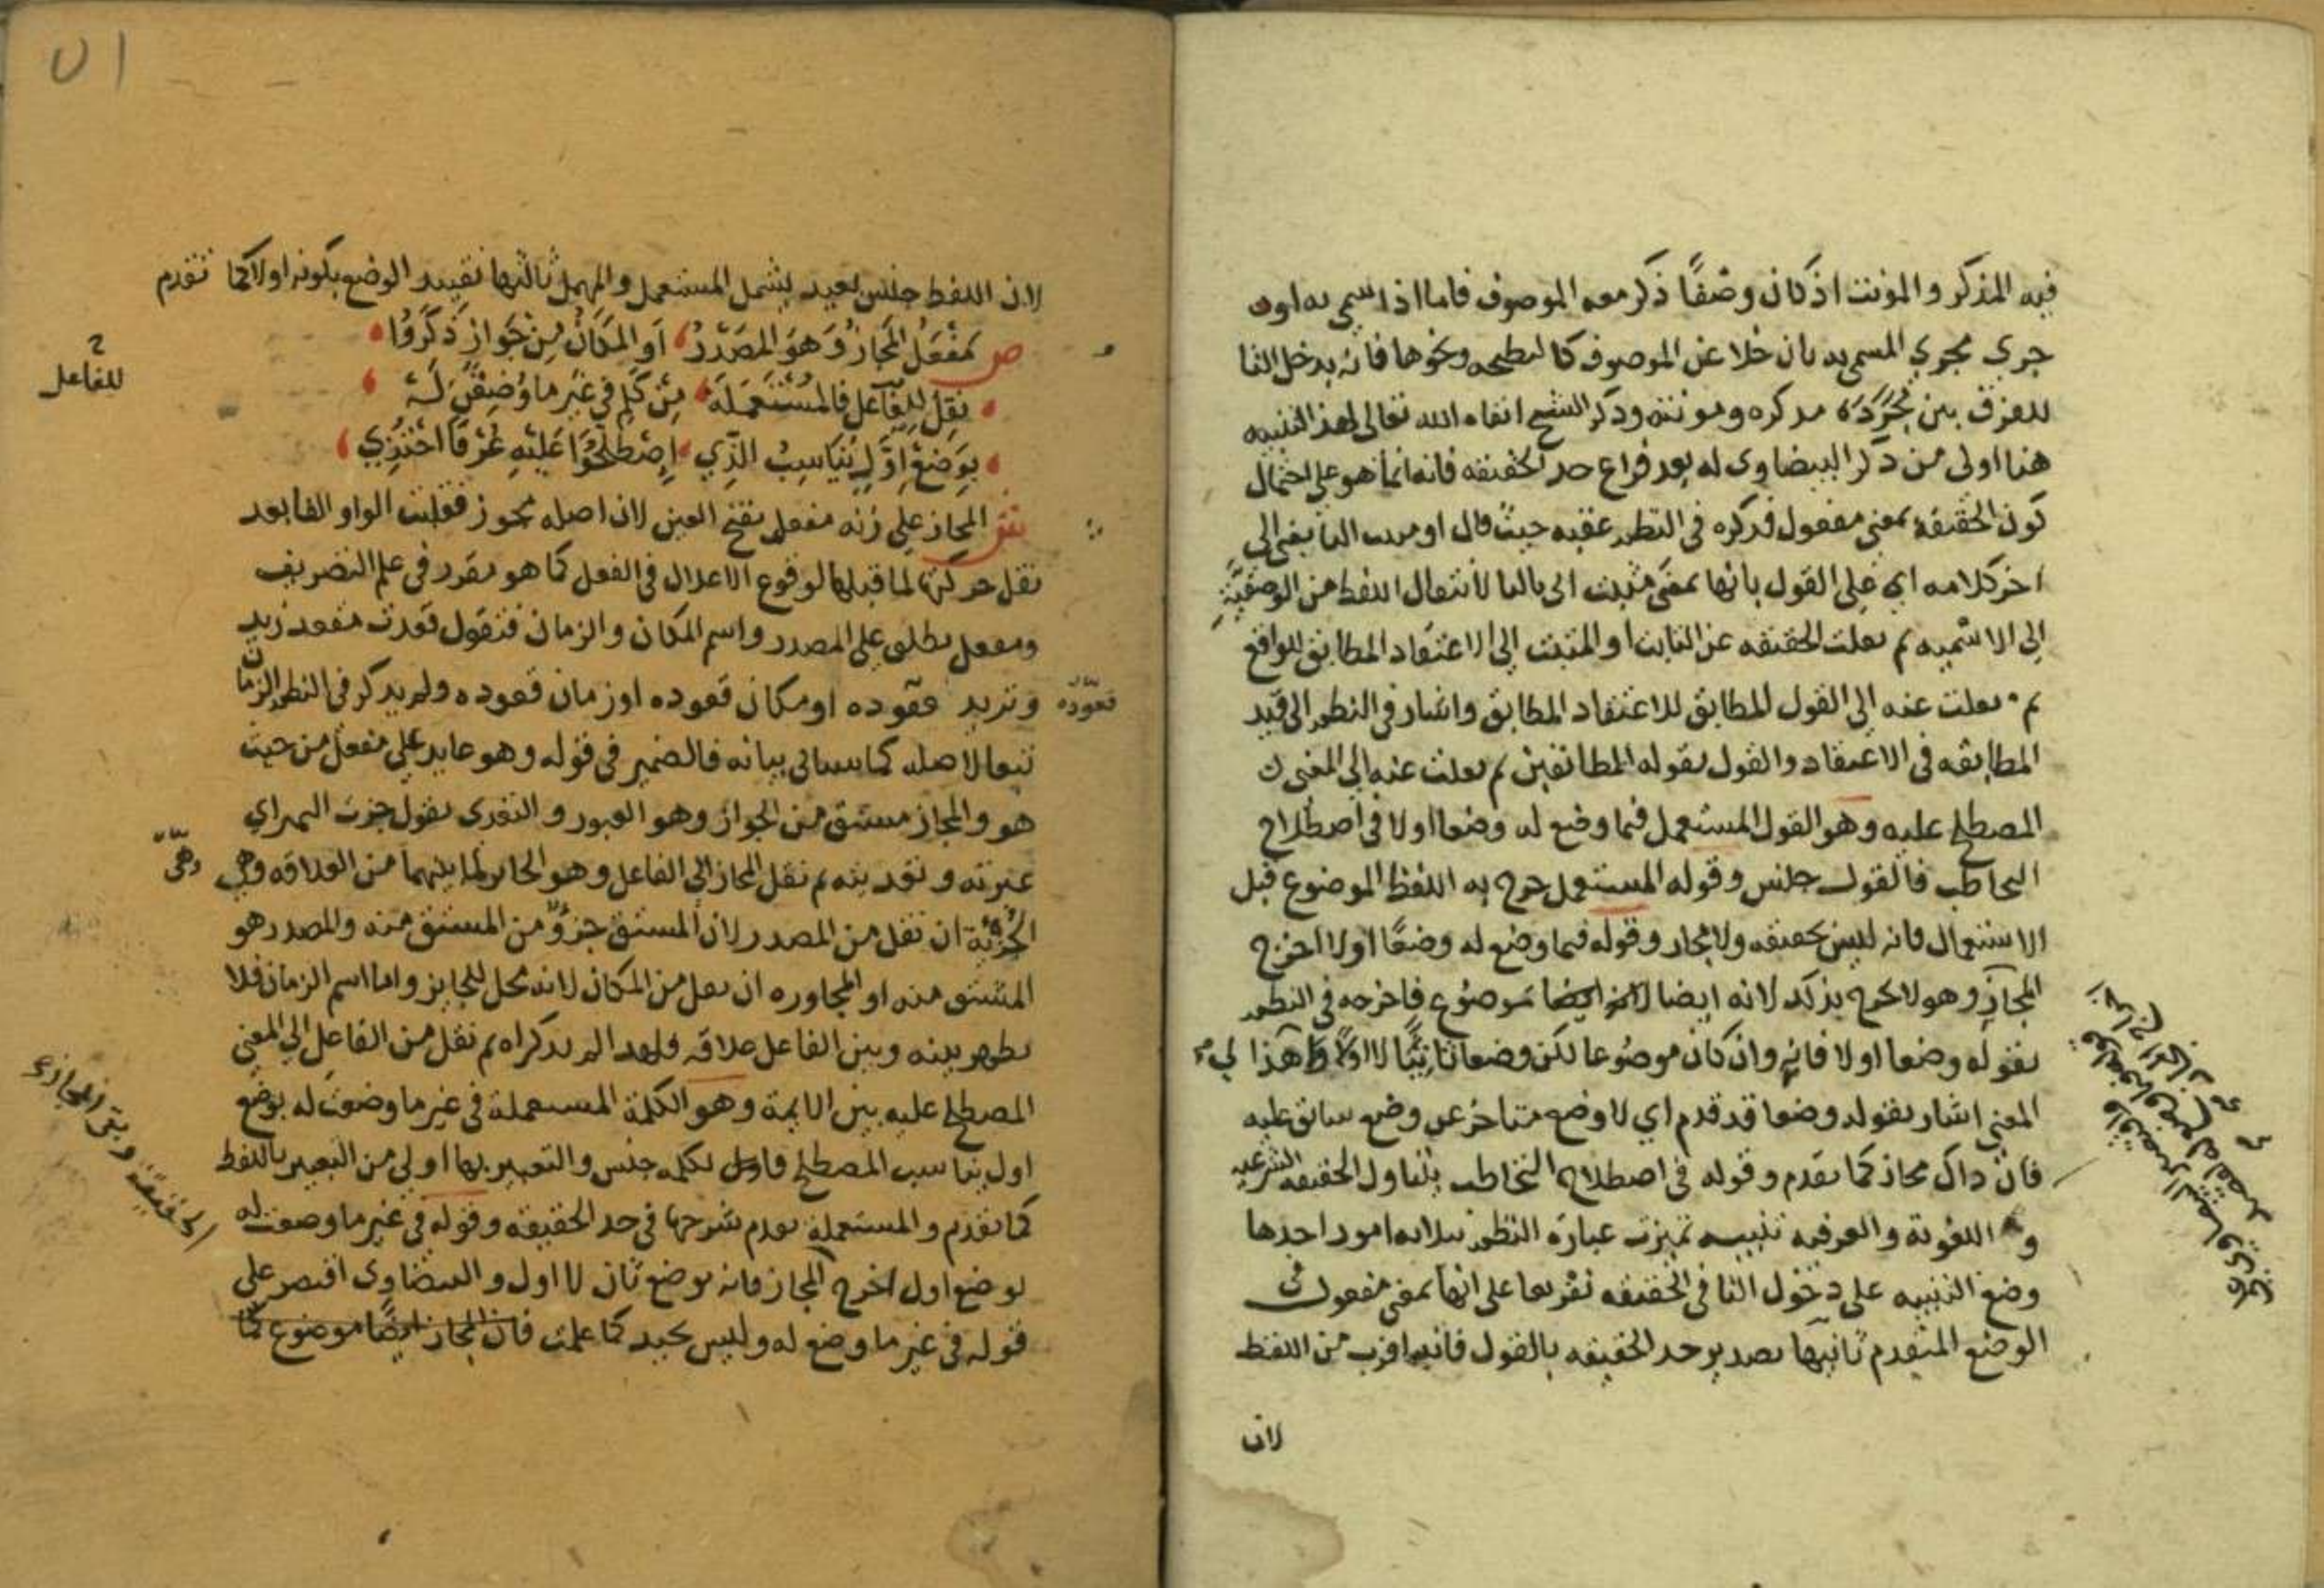 فيه المذكر والمونث اذ كان وصفًا ذكر معه الموصوف فاما اذا سمى به او
جرى مجرى المسمى به بان خلا عن الموصوف كالنطيحه ونحوها فانه يدخل التا
للفرق بين مذكره ومونثه وذكر الشيخ ابقاه الله تعالى لهذا التنبيه
هنا اولى من ذكر البيضاوى له بعد فراغ حد الحقيقه فانه انما هو على احتمال
كون الحقيقه بمعنى مفعول فذكره فى النظم عقبه حيث قال او مثبت التا يفى الى
اخر كلامه اي على القول بانها بمعنى مثبت اتى بالتا لانتقال اللفظ من الوصفيَّةِ
الى الاسميه ثم نقلت الحقيقه عن الثابت او المثبت الى الاعتقاد المطابق للواقع
ثم نقلت عنه الى القول المطابق للاعتقاد المطابق واشار فى النظم الى قيد
المطابقه فى الاعتقاد والقول بقوله المطابقين ثم نقلت عنه الى المعنى
المصطلح عليه وهو القول المستعمل فيما وضع له وضعا اولا فى اصطلاح
التخاطب فالقول جنس وقوله المستعمل خرج به اللفظ الموضوع قبل
الاستعمال فانه ليس بحقيقه ولا مجاز وقوله فيما وضع له وضعًا اولا اخرج
المجاز وهو لا يخرج بذلك لانه ايضا موضوع فاخرجه فى النظم
بقوله وضعا اولا فانه وان كان موضوعا لكن وضعا ثانيًا لا اولا ولهذا
المعنى اشار بقوله وضعا قد قدم اي لا وضع متاخر عن وضع سابق عليه
فان ذاك مجاز كما تقدم وقوله فى اصطلاح التخاطب يتناول الحقيقه الشرعيه
و اللغوية والعرفيه تنبيه تميزت عبارة النظم بثلاثه امور احدها
وضع التنبيه على دخول التا فى الحقيقه تفريعا على انها بمعنى مفعول فى
الوضع المتقدم ثانيها تصدير حد الحقيقه بالقول فانه اقرب من اللفظ
لان
لان اللفظ جنس بعيد يشمل المستعمل والمهمل ثالثها تقييد الوضع بكونه اولا كما تقدم
ص مَفْعَلُ المجازُ وَهوَ المَصْدَرُ اَو المَكَانُ مِن جَوازٍ ذَكَرُوا
نقل للفاعل فالمُسْتَعمَلَه مِن كَلِمٍ في غَيرِ ما وُضِعْنَ لَهْ
للفاعل
بِوَضعِ اوَّلٍ يُنَاسِبُ الذِّي اِصْطَلَحُوا عَلَيْهِ عُرْفًا احْتُذِي
ش المجاز على زنه مفعل بفتح العين لان اصله مجوز فقلبت الواو الفا بعد
نقل حركتها لما قبلها لوقوع الاعلال فى الفعل كما هو مقرر فى علم التصريف
ومفعل يطلق على المصدر واسم المكان والزمان فتقول قعدت مقعد زيد
وتريد قعوده او مكان قعوده او زمان قعوده ولم يذكر فى النظم الزمان
قعوده
تبعا لاصله كما سياتى بيانه فالضمير فى قوله وهو عايد على مفعل من حيث
هو والمجاز مشتق من الجواز وهو العبور والتعدى تقول جزت النهر اي
عبرته وتعديته ثم نقل المجاز الى الفاعل وهو الجايز لما بينهما من العلاقه وهى
وهى
الجزئية ان نقل من المصدر لان المشتق جزؤ من المشتق منه والمصدر هو
المشتق منه او المجاوره ان نقل من المكان لانه محل للجايز واما اسم الزمان فلا
يظهر بينه وبين الفاعل علاقه ولهذا لم يذكراه ثم نقل من الفاعل الى المعنى
المصطلح عليه بين الايمة وهو الكلمة المستعملة فى غير ما وضعت له بوضع
اول يناسب المصطلح فالكلمه جنس والتعبير بها اولى من التعبير باللفظ
كما تقدم والمستعملة تقدم شرحها فى حد الحقيقه وقوله فى غير ما وضعت له
بوضع اول اخرج المجاز فانه بوضع ثان لا اول والبيضاوى اقتصر على
قوله فى غير ما وضع له وليس بجيد كما علمت فان المجاز ايضًا موضوع كما